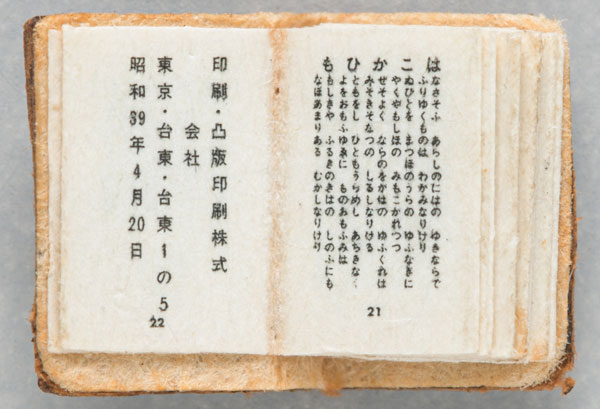 はなさそふ あらしのにはの ゆきならで
ふりゆくものは わかみなりけり
こぬひとを まつほのうらの ゆふなぎに
やくやもしほの みもこかれつつ
かぜそよく ならのをかはの ゆふくれは
みそきそなつの しるしなりける
ひともをし ひともうらめし あちきなく
よをおもふゆゑに ものおもふみは
ももしきや ふるきのきはの しのふにも
なほあまりある むかしなりけり
21
印刷・凸版印刷株式
会社
東京・台東・台東1の5
昭和39年4月20日
22